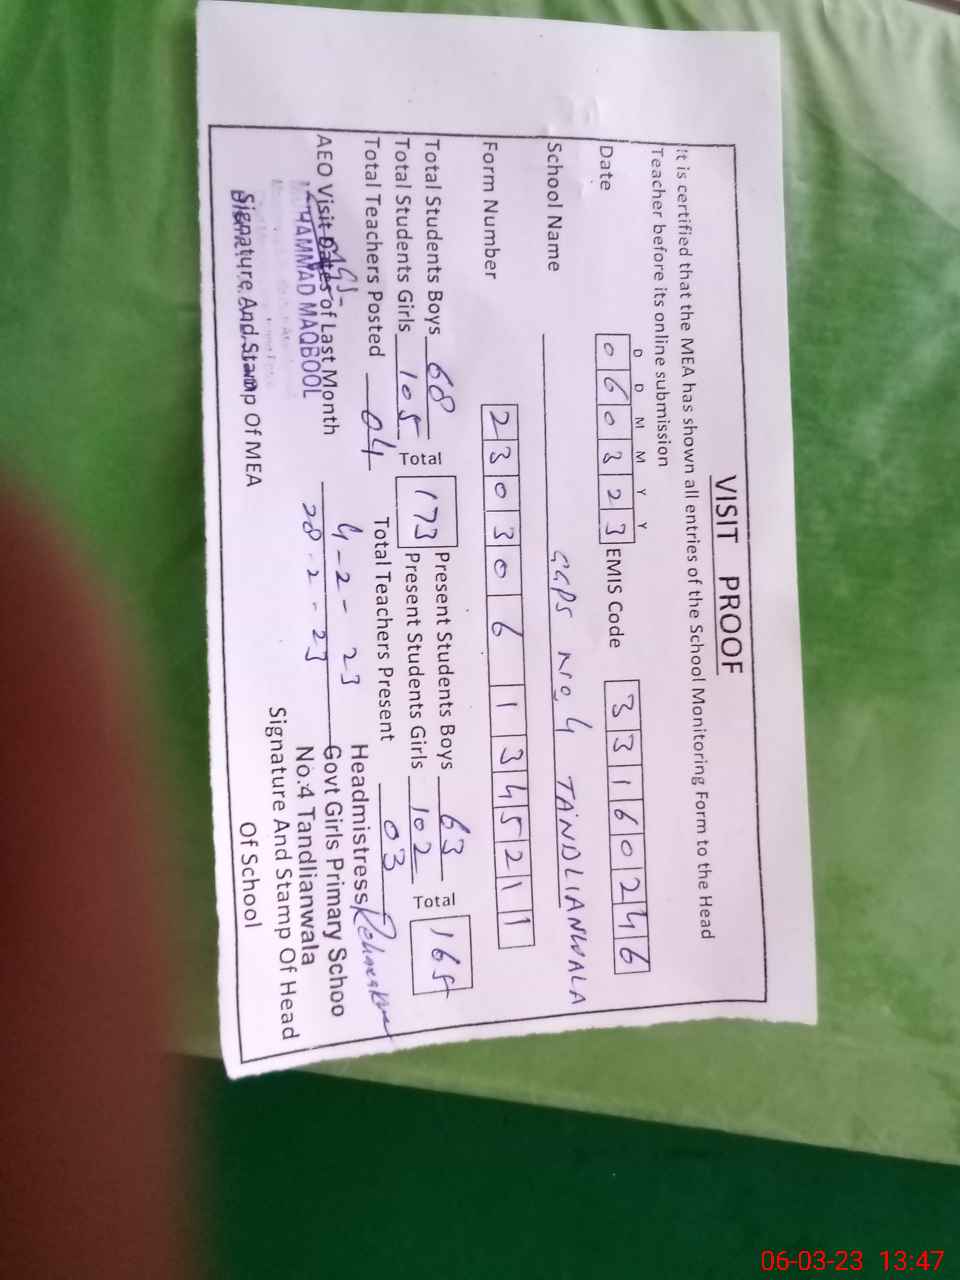 VISIT PROOF
It is certified that the MEA has shown all entries of the School Monitoring Form to the Head
Teacher before its online submission
D D M M Y Y
Date 060323 EMIS Code 33160246
School Name GGPS No. 4 TANDLIANWALA
Form Number 23030611345211
Total Students Boys 68 Total 173 Present Students Boys 63 Total 165
Total Students Girls 105 Present Students Girls 102
Total Teachers Posted 04 Total Teachers Present 03
AEO Visit Dates of Last Month 4-2-23
28-2-23
MUHAMMAD MAQBOOL
Signature And Stamp Of MEA
Headmistress
Govt Girls Primary Schoo
No:4 Tandlianwala
Signature And Stamp Of Head
Of School
06-03-23 13:47